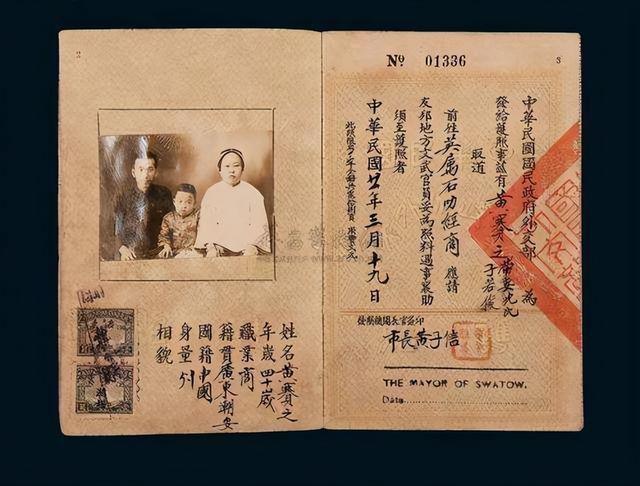 2
姓名黃賽之
年歲四十歲
職業商
籍貫廣東潮安
國籍中國
身量
相貌
3
№ 01336
中華民國國民政府外交部 為
發給護照事茲有黃賽之帶妻尤氏
子若俊
取道
前往英屬石叻經商 應請
友邦地方文武官員妥為照料遇事襄助
須至護照者
中華民國廿年三月十九日
發照機關長官簽印
市長黃子信
THE MAYOR OF SWATOW.
Date